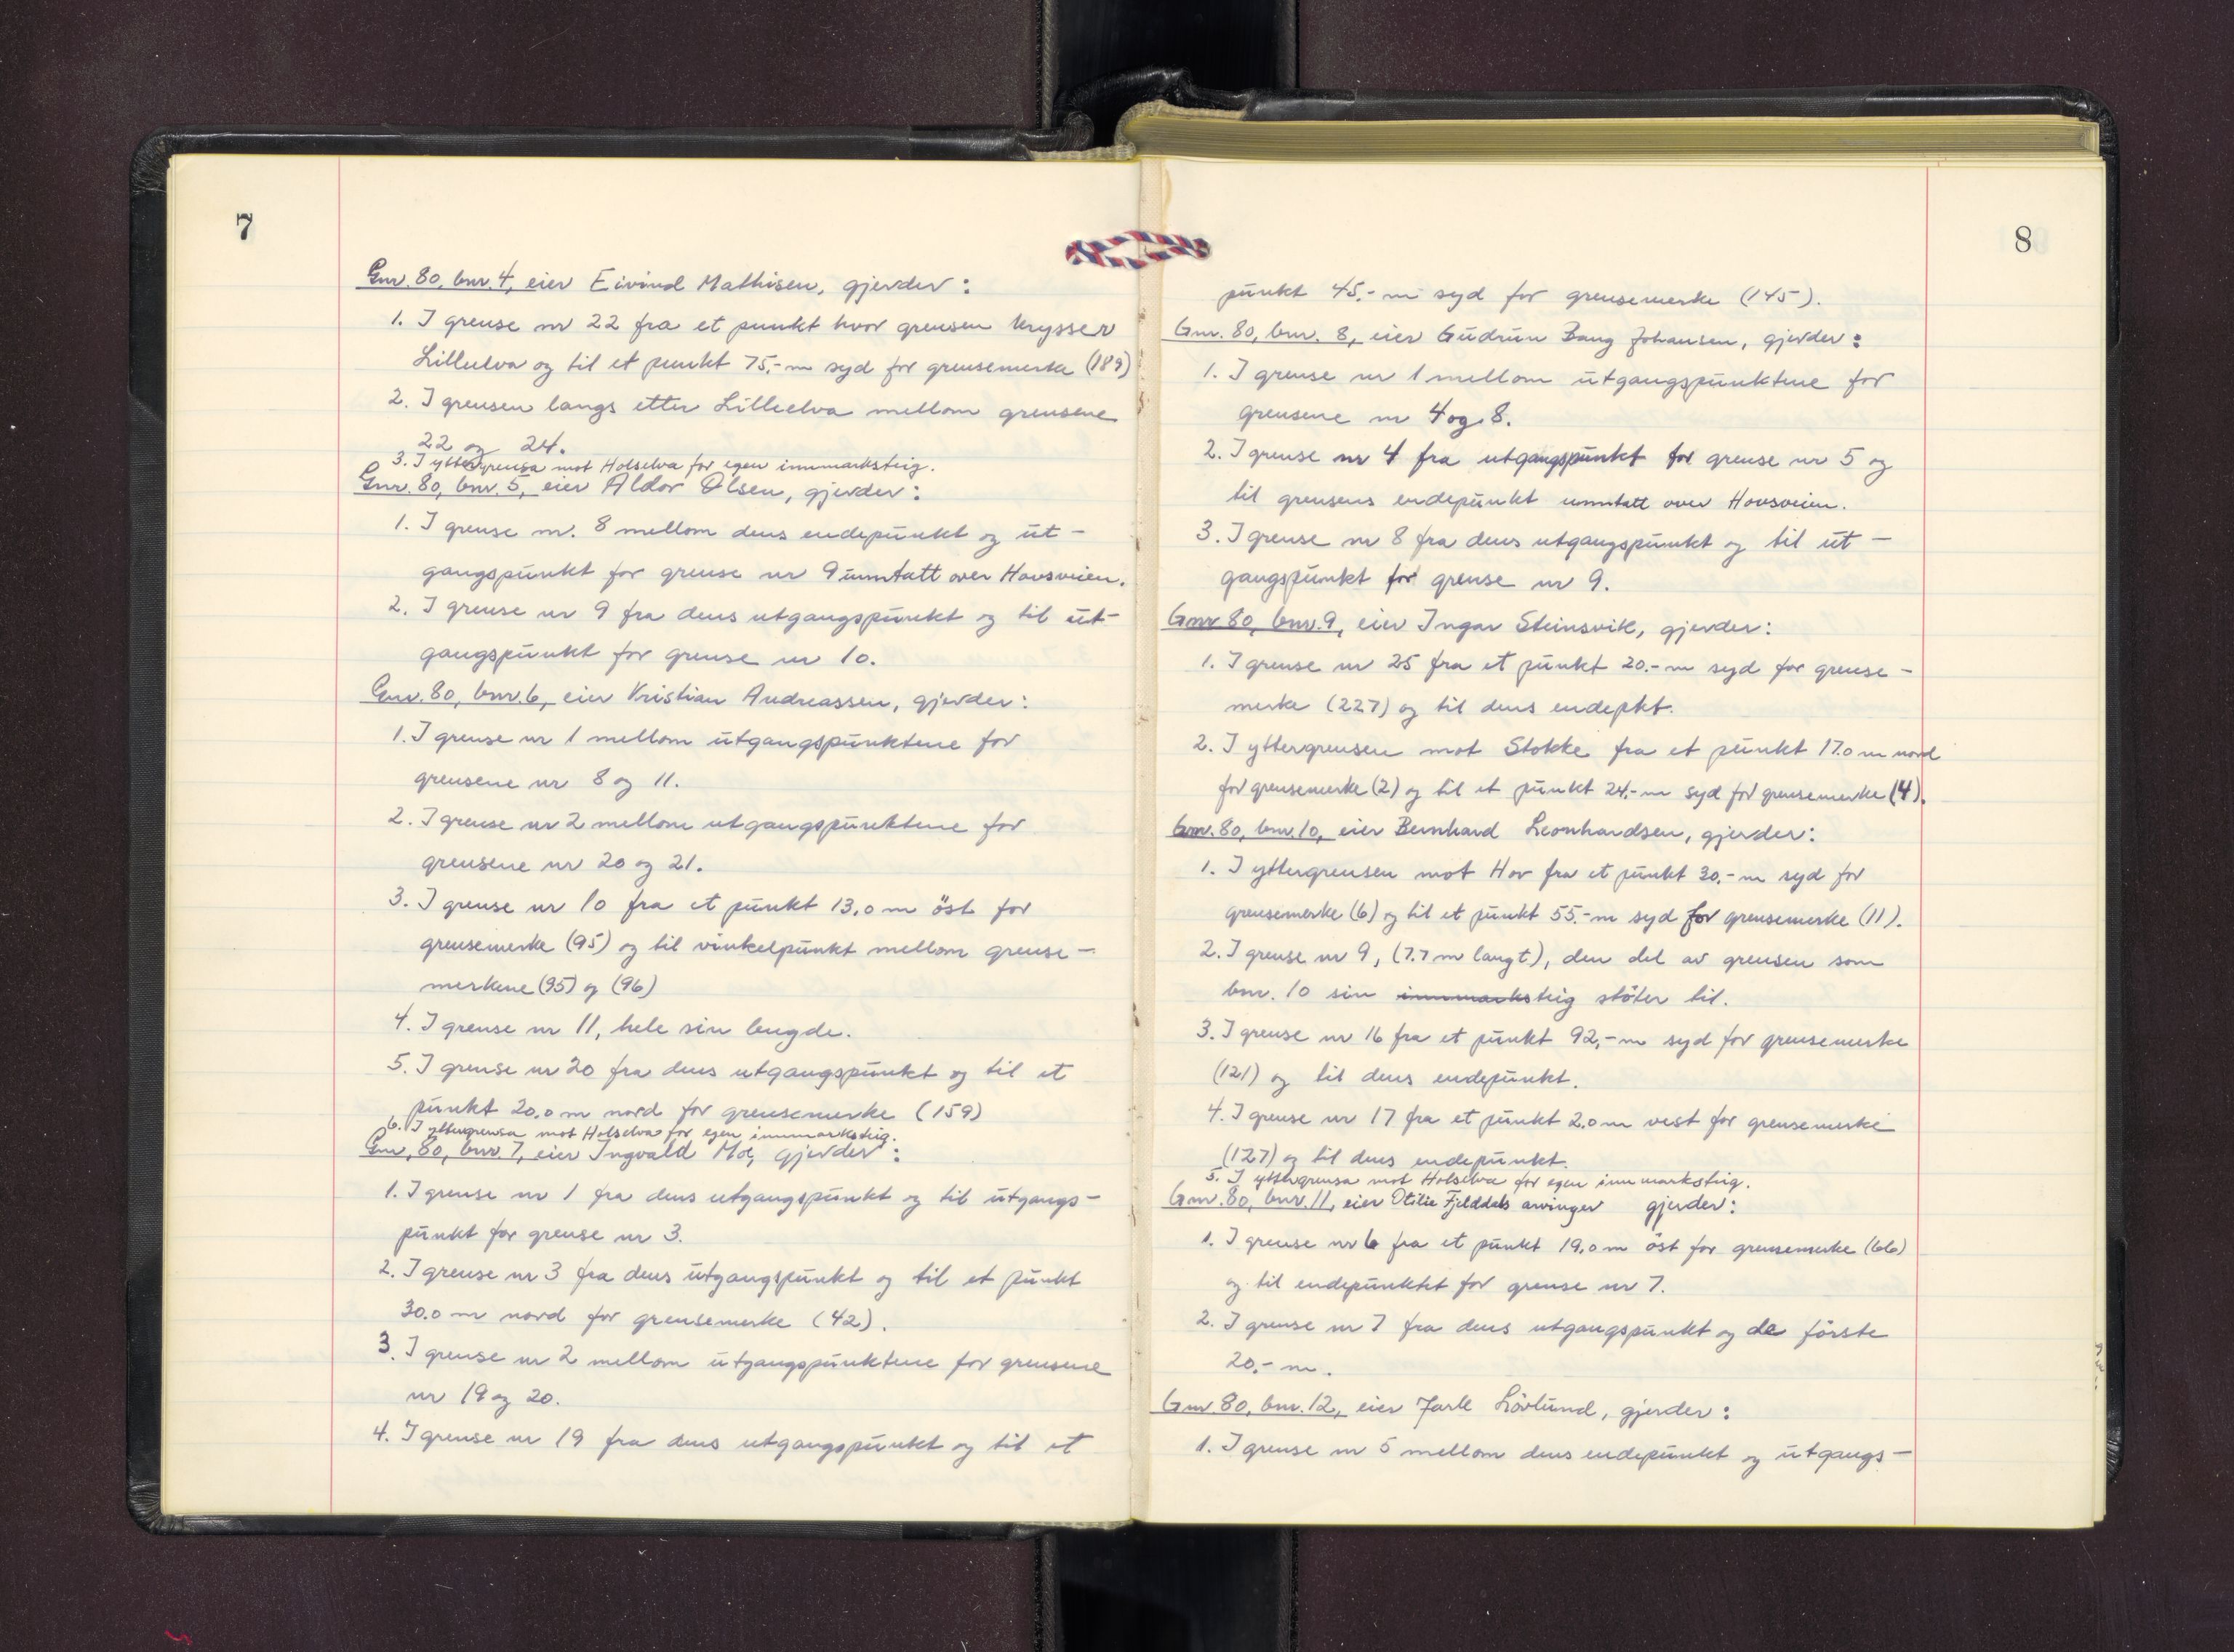 7
Gnr. 80, bnr. 4, eier Eivind Mathisen, gjerder:
1. I grense nr 22 fra et punkt hvor grensen krysser
Lilleelva og til et punkt 75,- m syd for grensemerke (189)
2. I grensen langs etter Lilleelva mellom grensene
22 og 24.
3. I yttergrensa mot Holselva for egen innmarksteig.
Gnr. 80, bnr. 5, eier Aldor Olsen, gjerder:
1. I grense nr. 8 mellom dens endepunkt og ut-
gangspunkt for grense nr 9 unntatt over Hovsveien.
2. I grense nr 9 fra dens utgangspunkt og til ut-
gangspunkt for grense nr 10.
Gnr. 80, bnr. 6, eier Kristian Andreassen, gjerder:
1. I grense nr 1 mellom utgangspunktene for
grensene nr 8 og 11.
2. I grense nr 2 mellom utgangspunktene for
grensene nr 20 og 21.
3. I grense nr 10 fra et punkt 13,0 m öst for
grensemerke (95) og til vinkelpunkt mellom grense-
merkene (95) og (96)
4. I grense nr 11, hele sin lengde.
5. I grense nr 20 fra dens utgangspunkt og til et
punkt 20,0 m nord for grensemerke (159)
6. I yttergrensa mot Holselva for egen innmarksteig.
Gnr, 80, bnr. 7, eier Ingvald Moe, gjerder:
1. I grense nr 1 fra dens utgangspunkt og til utgangs-
punkt for grense nr 3.
2. I grense nr 3 fra dens utgangspunkt og til et punkt
30.0 m nord for grensemerke (42).
3. I grense nr 2 mellom utgangspunktene for grensene
nr 19 og 20.
4. I grense nr 19 fra dens utgangspunkt og til et
8
punkt 45,- m syd for grensemerke (145).
Gnr. 80, bnr. 8, eier Gudrun Bang Johansen, gjerder:
1. I grense nr 1 mellom utgangspunktene for
grensene nr 4 og 8.
2. I grense nr 4 fra utgangspunkt for grense nr 5 og
til grensens endepunkt unntatt over Hovsveien.
3. I grense nr 8 fra dens utgangspunkt og til ut-
gangspunkt for grense nr 9.
Gnr 80, bnr. 9, eier Ingar Steinsvik, gjerder:
1. I grense nr 25 fra et punkt 20.- m syd for grense-
merke (227) og til dens endepkt.
2. I yttergrensen mot Stokke fra et punkt 17.0 m nord
for grensemerke (2) og til et punkt 24,- m syd for grensemerke (4).
Gnr. 80, bnr. 10, eier Bernhard Leonhardsen, gjerder:
1. I yttergrensen mot Hov fra et punkt 30.- m syd for
grensemerke (6) og til et punkt 55.- m syd for grensemerke (11).
2. I grense nr 9, (7.7 m langt), den del av grensen som
bnr. 10 sin innmarksteig stöter til.
3. I grense nr 16 fra et punkt 92,- m syd for grensemerke
(121) og til dens endepunkt.
4. I grense nr 17 fra et punkt 2.0 m vest for grensemerke
(127) og til dens endepunkt.
5. I yttergrensa mot Holselva for egen innmarksteig.
Gnr. 80, bnr. 11, eier Otilie Fjelddals arvinger gjerder:
1. I grense nr 6 fra et punkt 19.0 m öst for grensemerke (66)
og til endepunktet for grense nr 7.
2. I grense nr 7 fra dens utgangspunkt og de förste
20,- m.
Gnr. 80, bnr. 12, eier Jarle Lövlund, gjerder:
1. I grense nr 5 mellom dens endepunkt og utgangs-